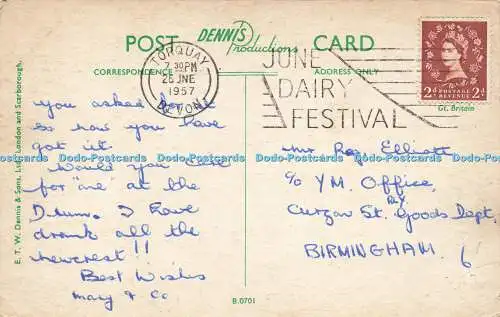 POST DENNIS Productions CARD
CORRESPONDENCE
ADDRESS ONLY
TORQUAY
7 30PM
25 JNE
1957
DEVON
JUNE
DAIRY
FESTIVAL
2d POSTAGE REVENUE 2d
Gt. Britain
you asked for it
so now you have
got it.
Would you care
for "one" at the
Drum. I have
drank all the
newcrest!!
Best Wishes
Mary & Co
Mr Reg Elliott
c/o Y.M. Office,
Curzon St. Rly. Goods Dept.
BIRMINGHAM. 6
E. T. W. Dennis & Sons, Ltd., London and Scarborough.
B.0701
Dodo-Postcards Dodo-Postcards Dodo-Postcards Dodo-Postcards Dodo-Postcards Dodo-Postcards